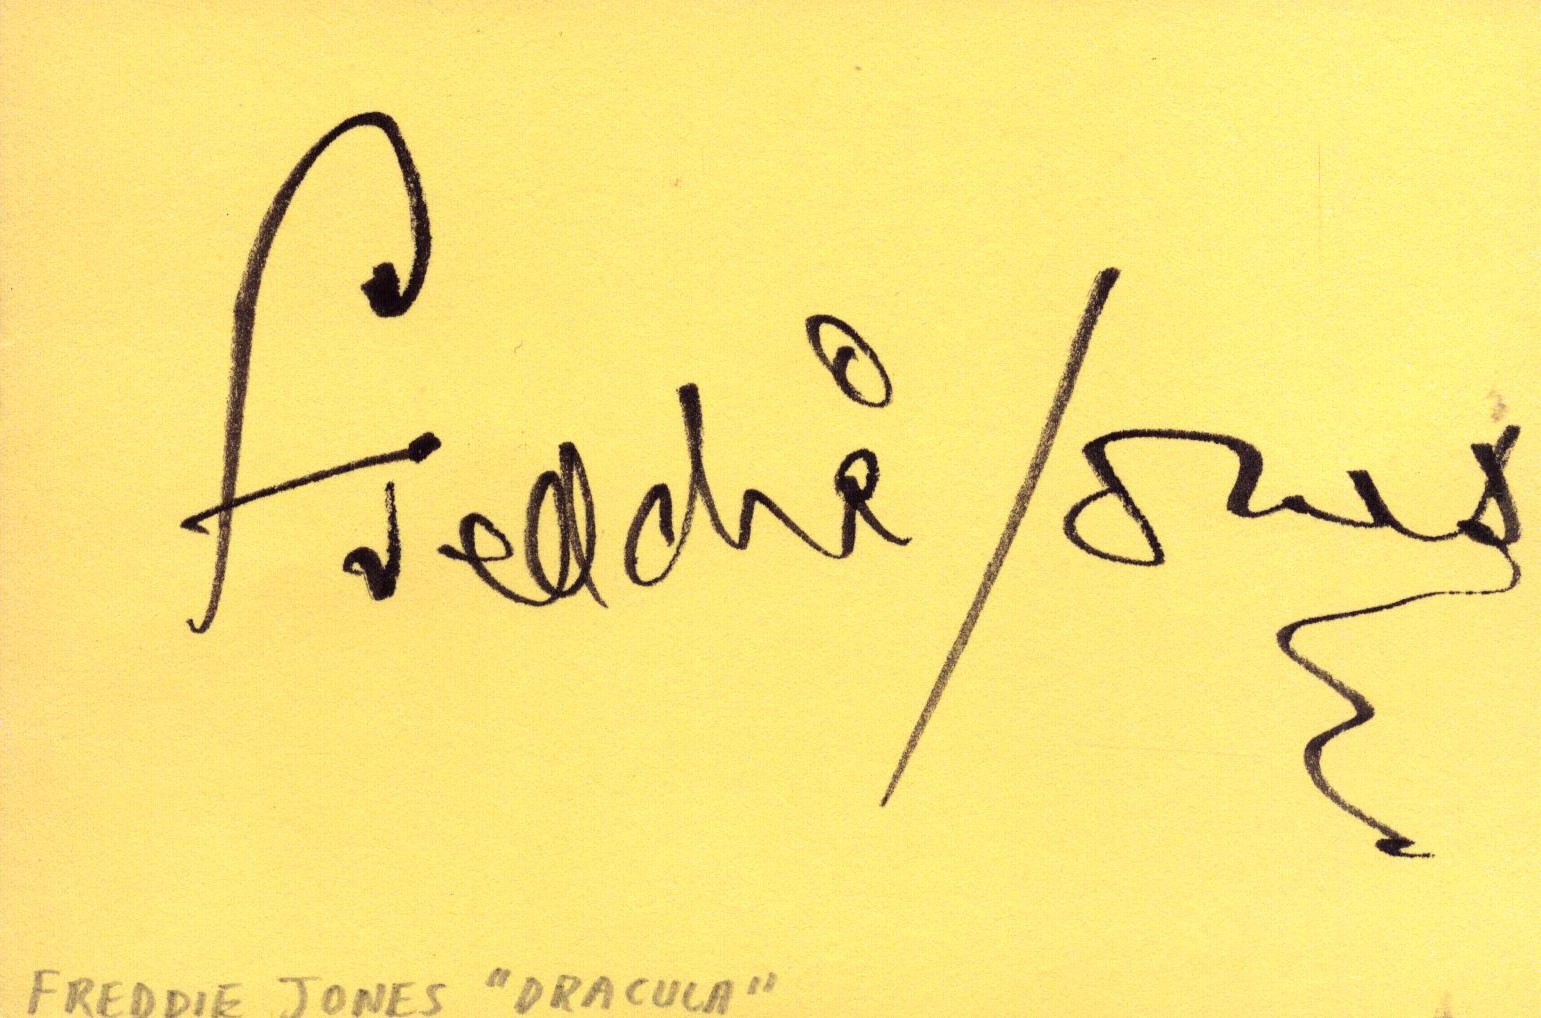 Freddie Jones
FREDDIE JONES "DRACULA"